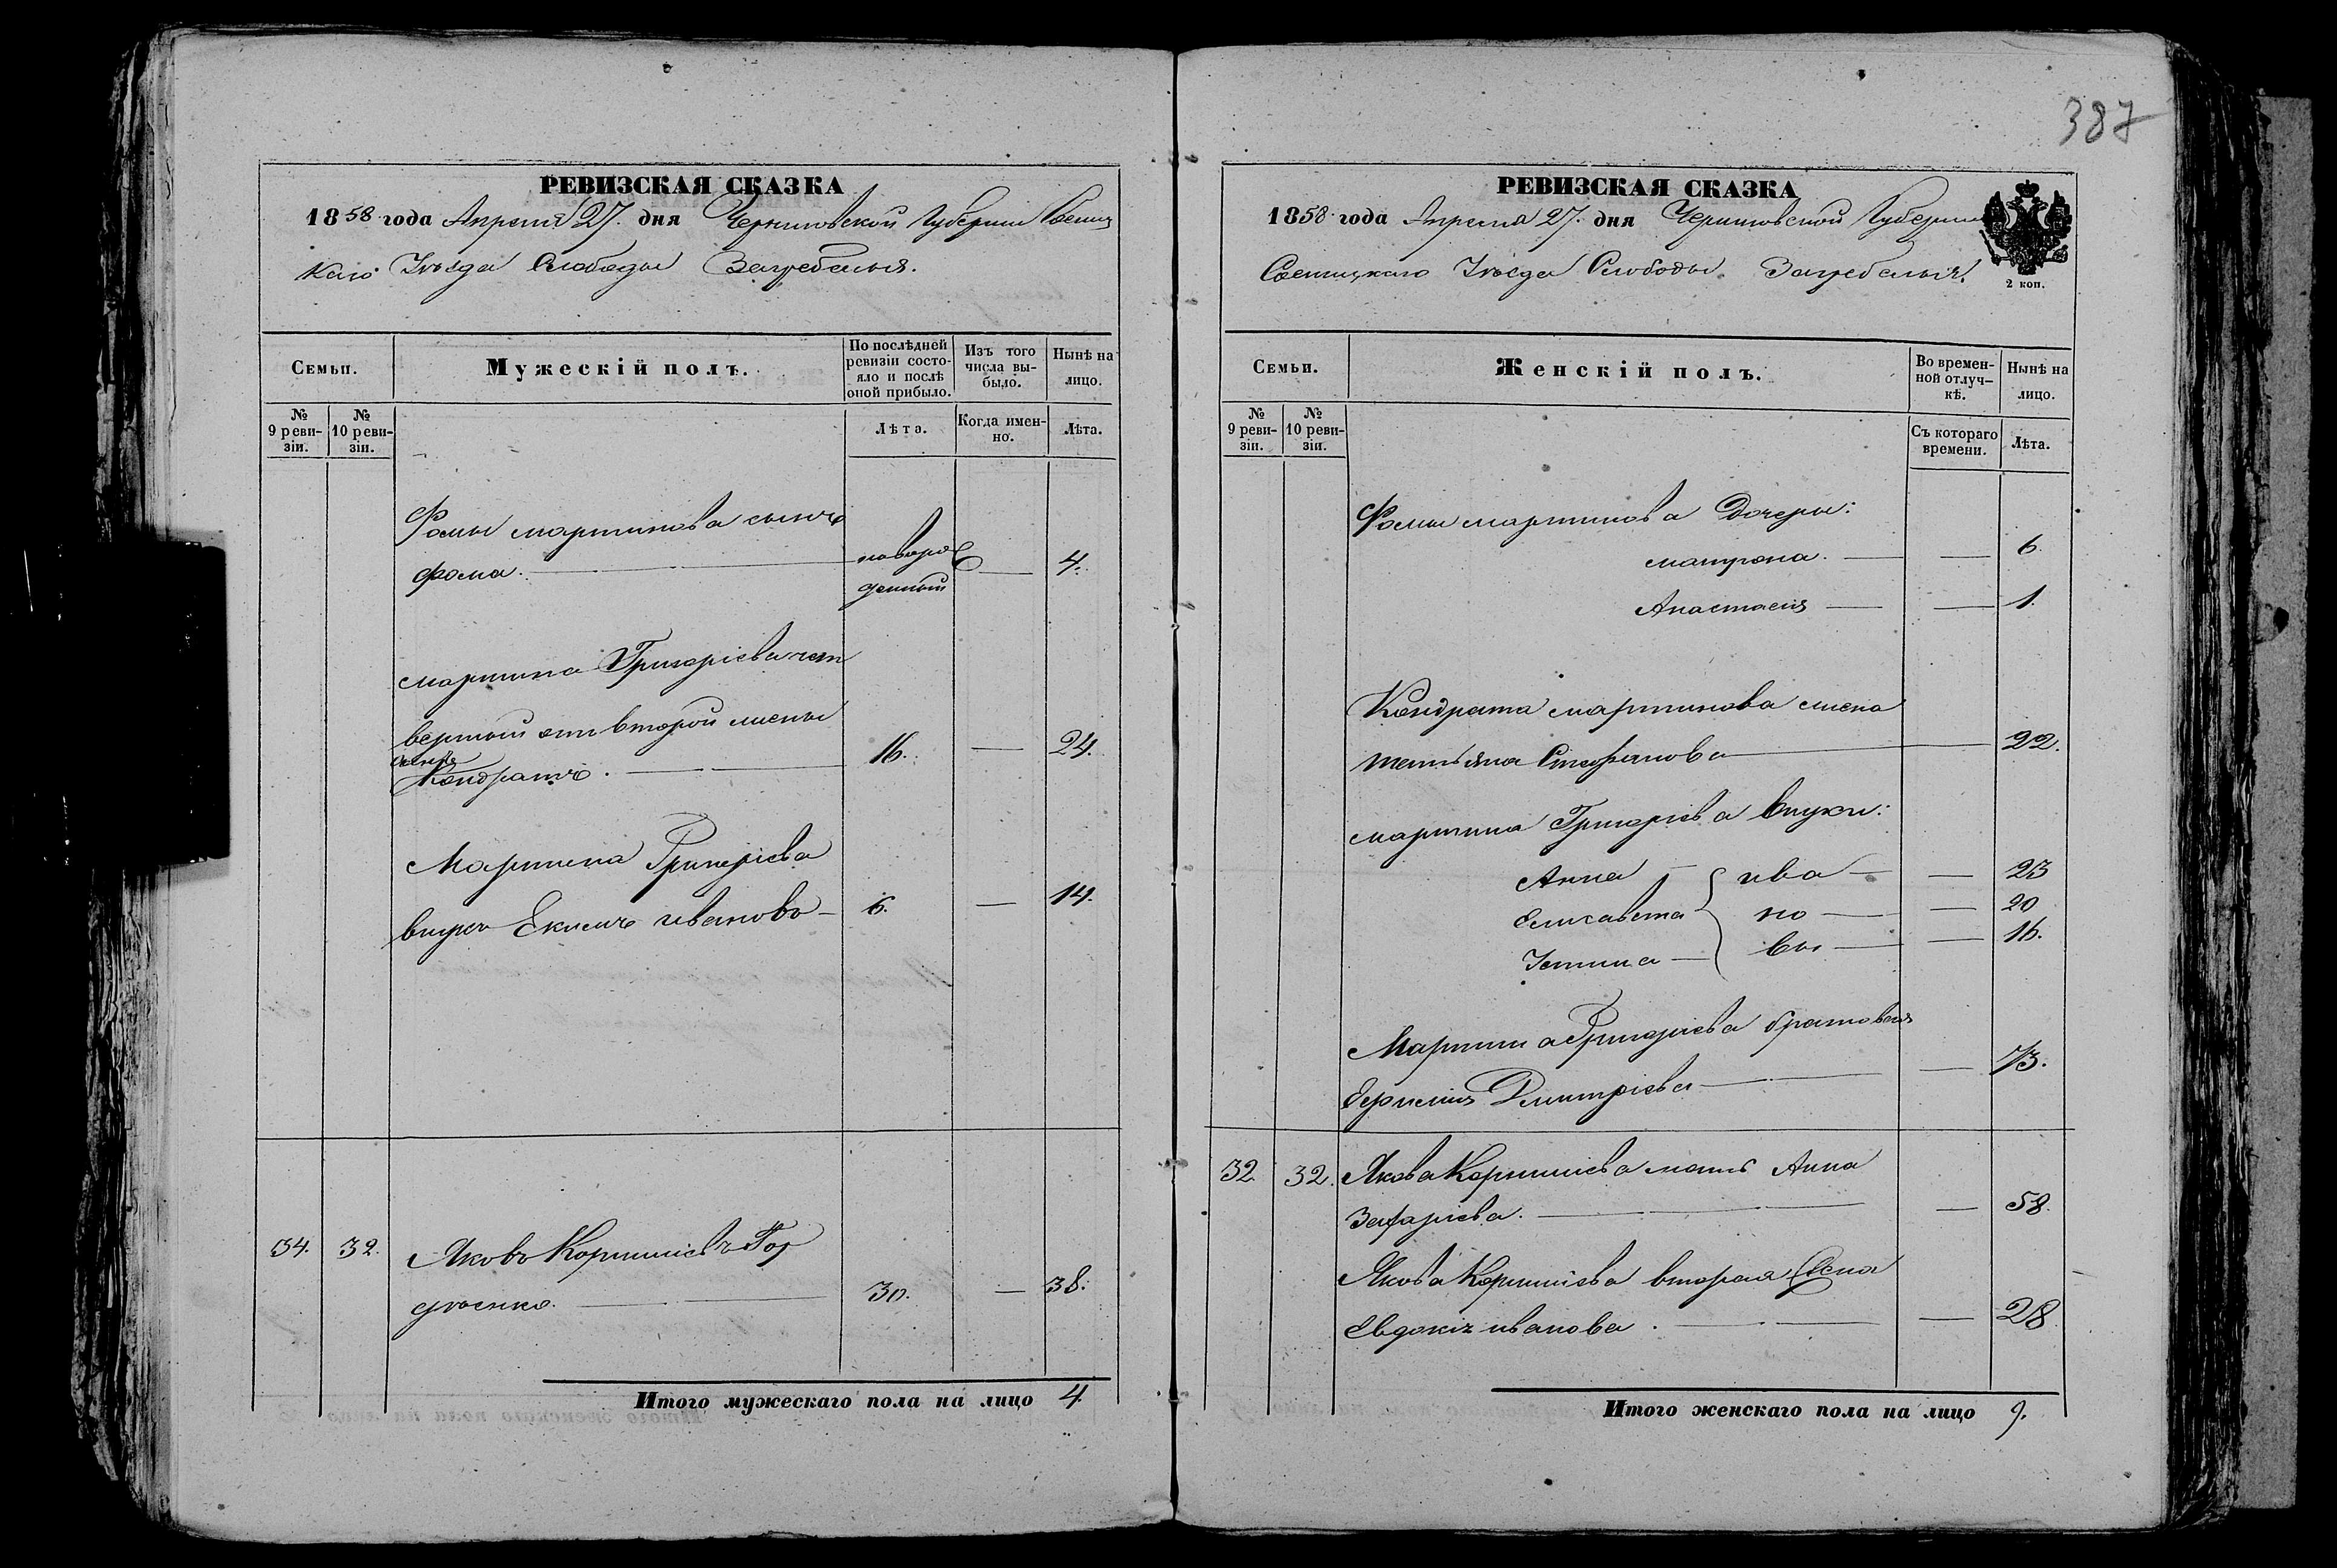 387
РЕВИЗСКАЯ СКАЗКА
1858 года Апреля 27. дня Черниговской Губернии Сосниц
каго Уѣзда Слободы Загребелья.
Семьи.
Мужескій полъ.
По послѣдней ревизіи состояло и послѣ оной прибыло.
Изъ того числа выбыло.
Нынѣ на лицо.
№ 9 ревизіи.
№ 10 ревизіи.
Лѣта.
Когда именно.
Лѣта.
Фомы мартинова сынъ
фома. новорож 4.
денный
мартина Григоріева чет
вертый отъ второй жены
сынъ
Кондратъ. 16. 24.
Мартина Григоріева
внукъ Екимъ ивановъ 6. 14.
34. 32. Яковъ Корниліевъ Гор
дѣенко. 30. 38.
Итого мужескаго пола на лицо 4.
РЕВИЗСКАЯ СКАЗКА
1858 года Апреля 27. дня Черниговской Губернии
Сосницкаго Уѣзда Слободы Загребелья.
2 коп.
Семьи.
Женскій полъ.
Во временной отлучкѣ.
Нынѣ на лицо.
№ 9 ревизіи.
№ 10 ревизіи.
Съ котораго времени.
Лѣта.
Фомы мартинова Дочери:
матрона. 6.
Анастасія 1.
Кондрата мартинова жена
татьяна Стефанова 22.
мартина Григоріева внуки:
Анна ива 23
Елисавета но 20
Устина вы 16.
Мартина Григоріева братовая
Ефимія Дмитріева 73.
32. 32. Якова Корниліева мать Анна
Захаріева. 58.
Якова Корниліева вторая жена
Евдокія иванова. 28.
Итого женскаго пола на лицо 9.